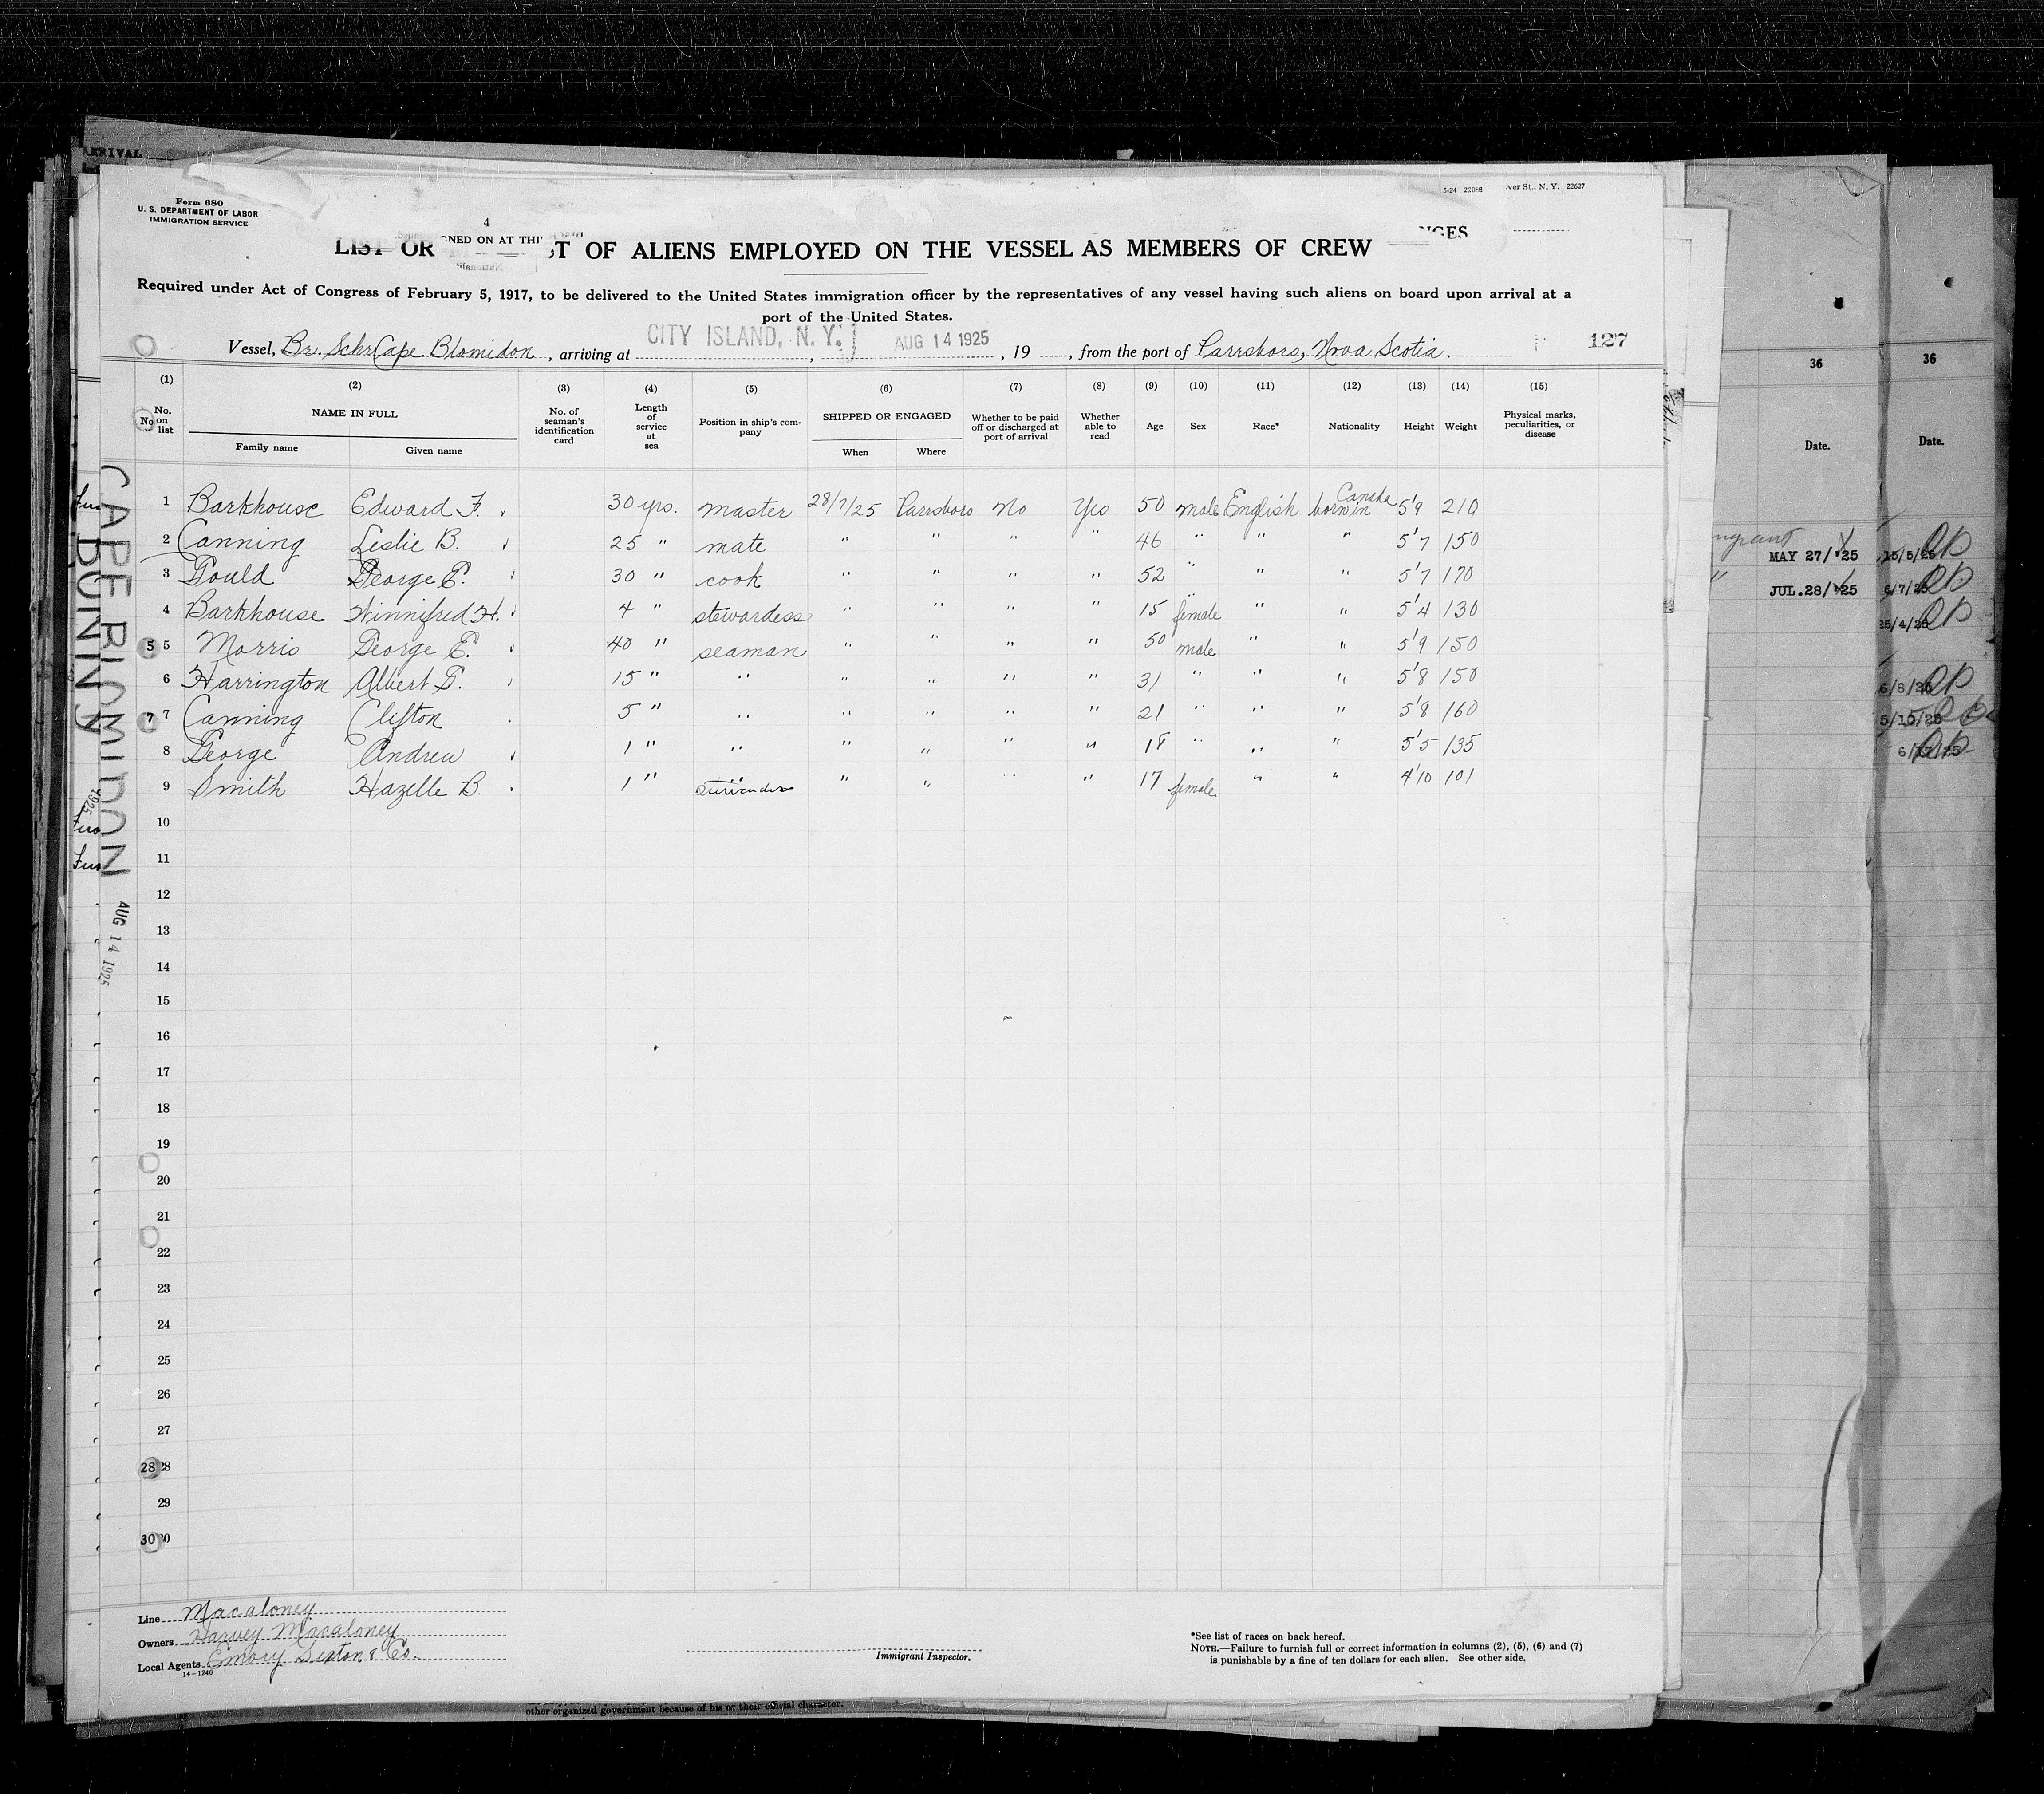 ARRIVAL
Form 680
U. S. DEPARTMENT OF LABOR
IMMIGRATION SERVICE
4
5-24 22088
ver St., N. Y. 22637
GNED ON AT THI
NGES
LIST OR ST OF ALIENS EMPLOYED ON THE VESSEL AS MEMBERS OF CREW
Required under Act of Congress of February 5, 1917, to be delivered to the United States immigration officer by the representatives of any vessel having such aliens on board upon arrival at a
port of the United States.
Vessel, Br. Schr Cape Blomidon, arriving at CITY ISLAND, N. Y., AUG 14 1925, 19, from the port of Parrsboro, Nova Scotia. 127
(1) (2) (3) (4) (5) (6) (7) (8) (9) (10) (11) (12) (13) (14) (15)
No. on list NAME IN FULL No. of seaman's identification card Length of service at sea Position in ship's company SHIPPED OR ENGAGED Whether to be paid off or discharged at port of arrival Whether able to read Age Sex Race* Nationality Height Weight Physical marks, peculiarities, or disease
Family name Given name When Where
1 Barkhouse Edward F. 30 yrs. master 28/7/25 Parrsboro No Yes 50 male English born in Canada 5'9 210
2 Canning Leslie B. 25 " mate " " " " 46 " " " 5'7 150
3 Gould George E. 30 " cook " " " " 52 " " " 5'7 170
4 Barkhouse Winnifred H. 4 " stewardess " " " " 15 female " " 5'4 130
5 5 Morris George E. 40 " seaman " " " " 50 male " " 5'9 150
6 Harrington Albert G. 15 " " " " " " 31 " " " 5'8 150
7 7 Canning Clifton 5 " " " " " " 21 " " " 5'8 160
8 George Andrew 1 " " " " " " 18 " " " 5'5 135
9 Smith Hazelle B. 1 " " " " " 17 female " " 4'10 101
10
11
12
13
14
15
16
17
18
19
20
21
22
23
24
25
26
27
28 28
29
30 30
CAPE BLOMIDON AUG 14 1925
BUNTNG
1925
Line Macaloney
Owners Harvey Macaloney
Local Agents Emory Sexton & Co.
14-1240
Immigrant Inspector.
*See list of races on back hereof.
NOTE.—Failure to furnish full or correct information in columns (2), (5), (6) and (7)
is punishable by a fine of ten dollars for each alien. See other side.
other organized government because of his or their official character.
36
Date.
MAY 27/'25
JUL.28/'25
36
Date.
15/5/25
6/7/25
25/4/25
6/8/25